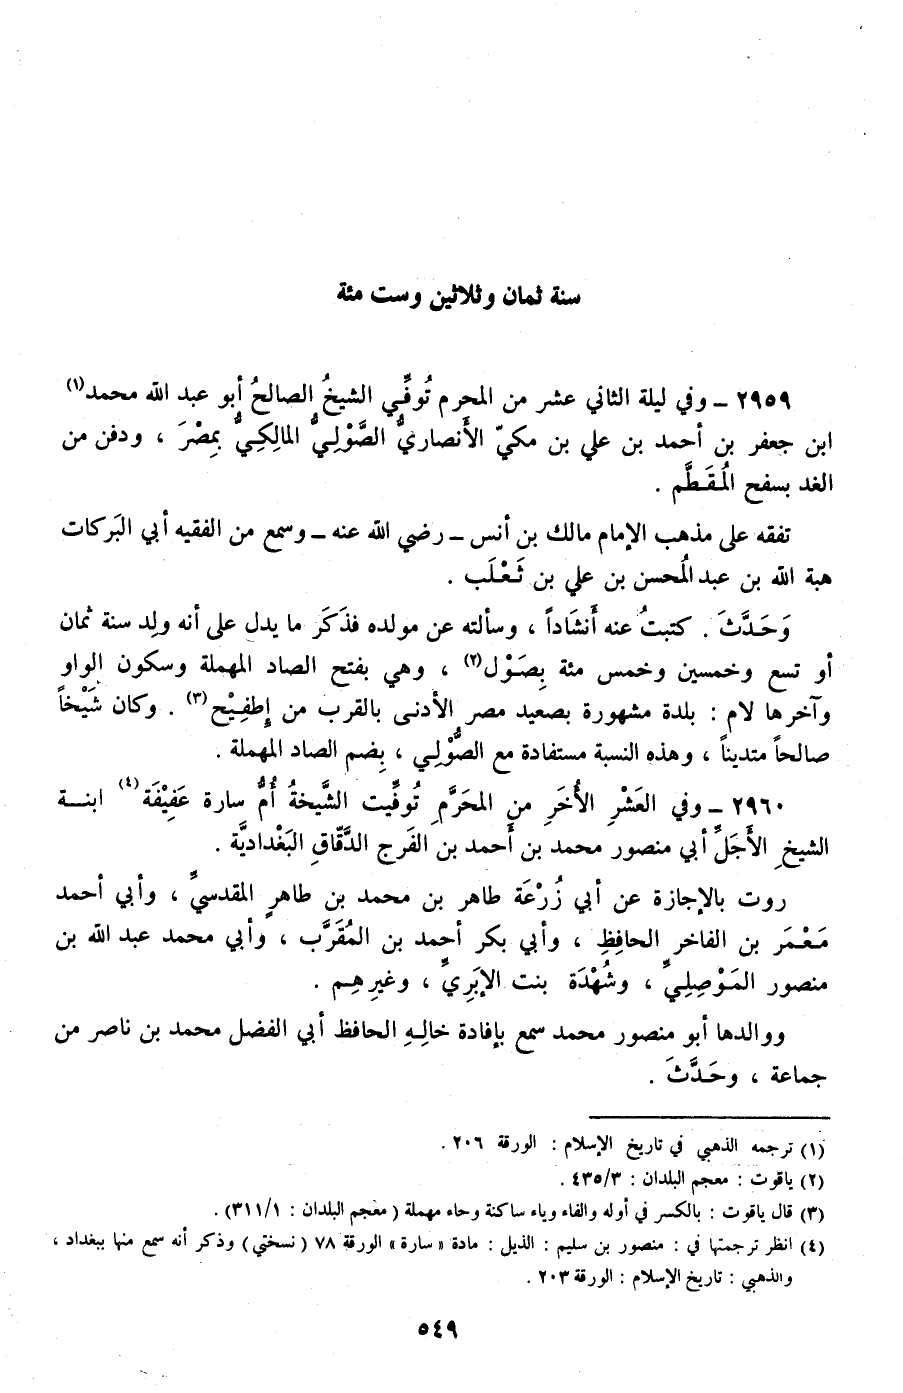 سنة ثمان وثلاثين وست مئة
٢٩٥٩ ــ وفي ليلة الثاني عشر من المحرم تُوفِّي الشيخُ الصالحُ أبو عبد الله محمد(١)
ابن جعفر بن أحمد بن علي بن مكيّ الأَنصاريُّ الصَّوْلِيُّ المالِكِيُّ بمِصْرَ ، ودفن من
الغد بسفح المُقَطَّم .
تفقه على مذهب الإمام مالك بن أنس ــ رضي الله عنه ــ وسمع من الفقيه أبي البَركات
هبة الله بن عبد المُحسن بن علي بن ثَعْلَب .
وَحَدَّثَ . كتبتُ عنه أَنشَاداً ، وسألته عن مولده فذَكَر ما يدل على أنه ولِد سنة ثمان
أو تسع وخمسين وخمس مئة بِصَوْل(٢) ، وهي بفتح الصاد المهملة وسكون الواو
وآخرها لام : بلدة مشهورة بصعيد مصر الأدنى بالقرب من إطفِيْح(٣) . وكان شَيْخاً
صالحاً متديناً ، وهذه النسبة مستفادة مع الصُّوْلِي ، بِضم الصاد المهملة .
٢٩٦٠ ــ وفي العَشْرِ الأُخَرِ منِ المحَرَّمِ تُوفِّيت الشَّيخةُ أُمُّ سارة عَفِيْفَة(٤) ابنــة
الشيخِ الأَجَلِّ أبي منصور محمد بن أحمد بن الفَرج الدَّقّاقِ البَغْداديَّة .
روت بالإجازة عن أبي زُرْعَة طاهر بن محمد بن طاهرٍ المقدسيِّ ، وأبي أحمد
مَعْمَر بن الفاخر الحافِظِ ، وأبي بكر أحمد بن المُقَرَّب ، وأبي محمد عبد الله بن
منصور المَوْصِلِيِّ ، وشُهْدَة بنت الإبَرِيِّ ، وغيرِهِم .
ووالدها أبو منصور محمد سمع بإفادة خالِهِ الحافظ أبي الفضل محمد بن ناصر من
جماعة ، وحَدَّثَ .
(١) ترجمه الذهبي في تاريخ الإسلام : الورقة ٢٠٦ .
(٢) ياقوت : معجم البلدان : ٤٣٥/٣ .
(٣) قال ياقوت : بالكسر في أوله والفاء وياء ساكنة وحاء مهملة ( معجم البلدان : ٣١١/١ ) .
(٤) انظر ترجمتها في : منصور بن سليم : الذيل : مادة « سارة » الورقة ٧٨ ( نسختي ) وذكر أنه سمع منها ببغداد ،
والذهبي : تاريخ الإسلام : الورقة ٢٠٣ .
٥٤٩